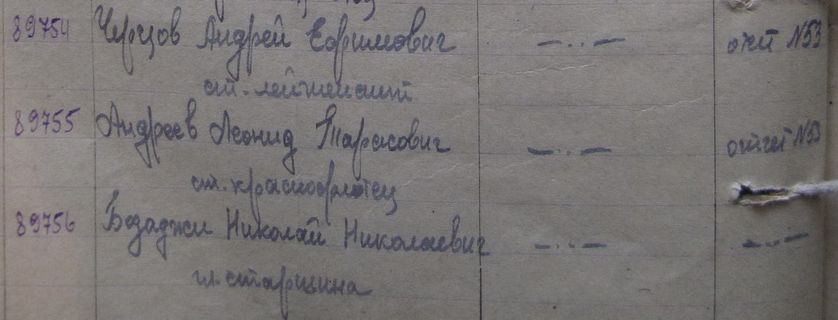 89754 Черцов Андрей Ефимович —..— отчёт №53
ст. лейтенант
89755 Андреев Леонид Тарасович —..— отчет №53
ст. краснофлотец
89756 Бозаджи Николай Николаевич —..— —..—
гл. старшина